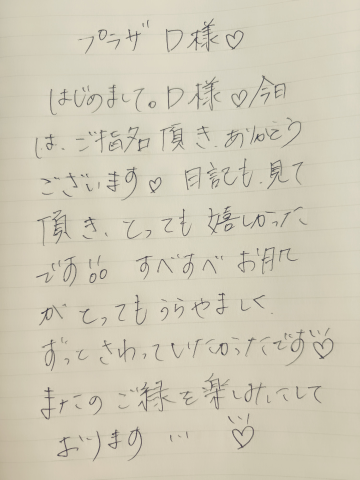 プラザ D様♡
はじめまして。D様♡今日
は、ご指名頂き、ありがとう
ございます♡ 日記も、見て
頂き、とっても嬉しかった
です すべすべお肌
がとってもうらやましく、
ずっとさわっていたかったです♡
またのご縁を楽しみにして
おります … ♡